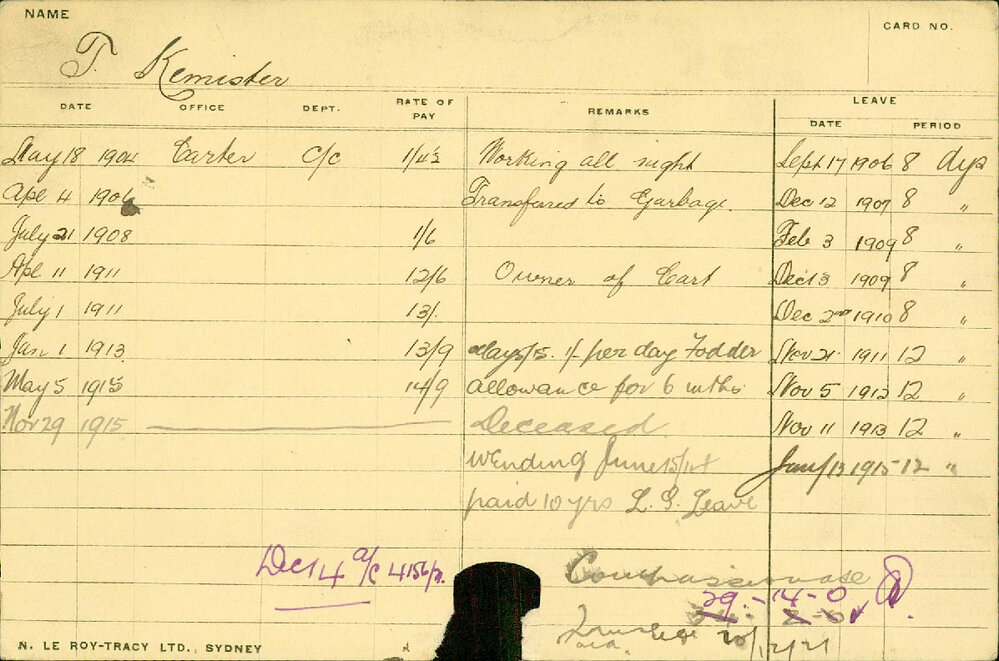 NAME
CARD NO.
T. Kemister
DATE OFFICE DEPT. RATE OF PAY REMARKS LEAVE
DATE PERIOD
May 18 1904 Carter C/C 1/4½ Working all night Sept 17 1906 8 dys
Apl 4 1906 Transferred to Garbage Dec 12 1907 8 "
July 21 1908 1/6 Feb 3 1909 8 "
Apl 11 1911 12/6 Owner of Cart Dec 13 1909 8 "
July 1 1911 13/- Dec 2nd 1910 8 "
Jan 1 1913 13/9 May 5/15. 1/ per day Fodder Nov 21 1911 12 "
May 5 1915 14/9 allowance for 6 mths Nov 5 1912 12 "
Nov 29 1915 Deceased Nov 11 1913 12 "
W Ending June 15/ Jany 13 1915 12 "
paid 10 yrs L. S. Leave
Dec 14 a/c 4156/
Compassionate
29 - 14 - 0
N. LE ROY-TRACY LTD., SYDNEY